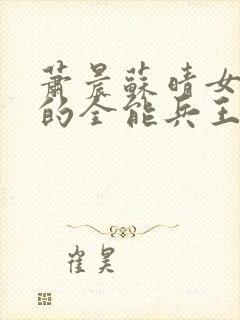 萧晨蘇晴女
的全能兵王
崔昊